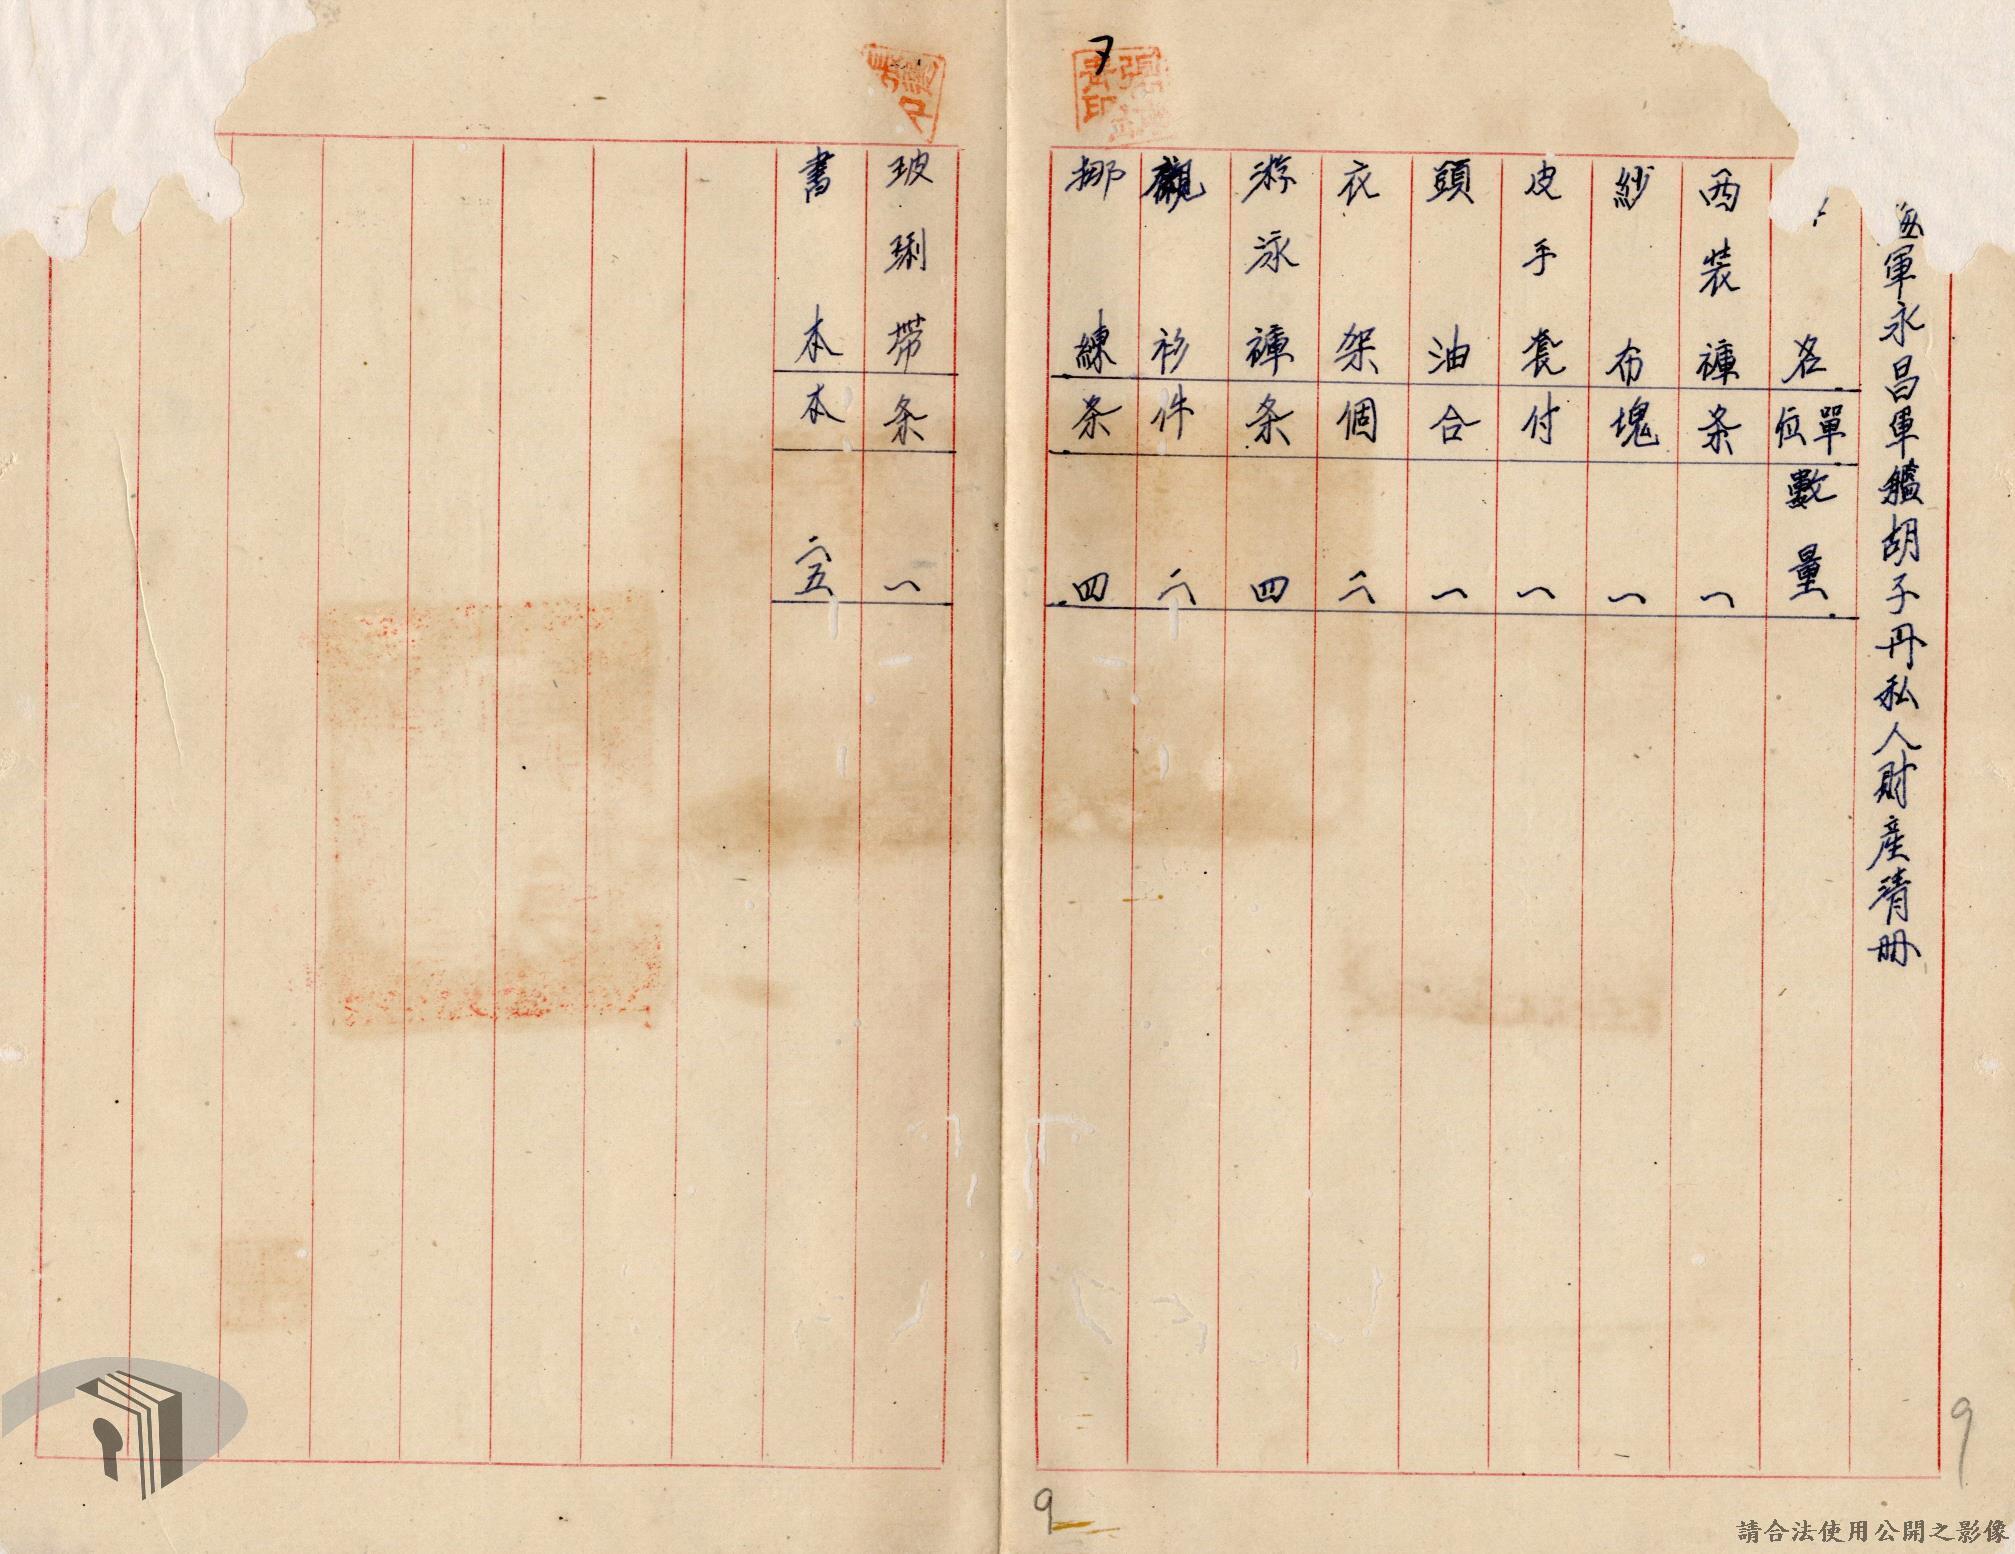 海軍永昌軍艦胡子丹私人財產清冊
名 單位 數量
西裝褲 条 一
紗布 塊 一
皮手套 付 一
頭油 合 一
衣架 個 二
游泳褲 条 四
襯衫 件 二
挪練 条 四
玻琍帶 条 一
書本 本 二五
7
9
9
請合法使用公開之影像